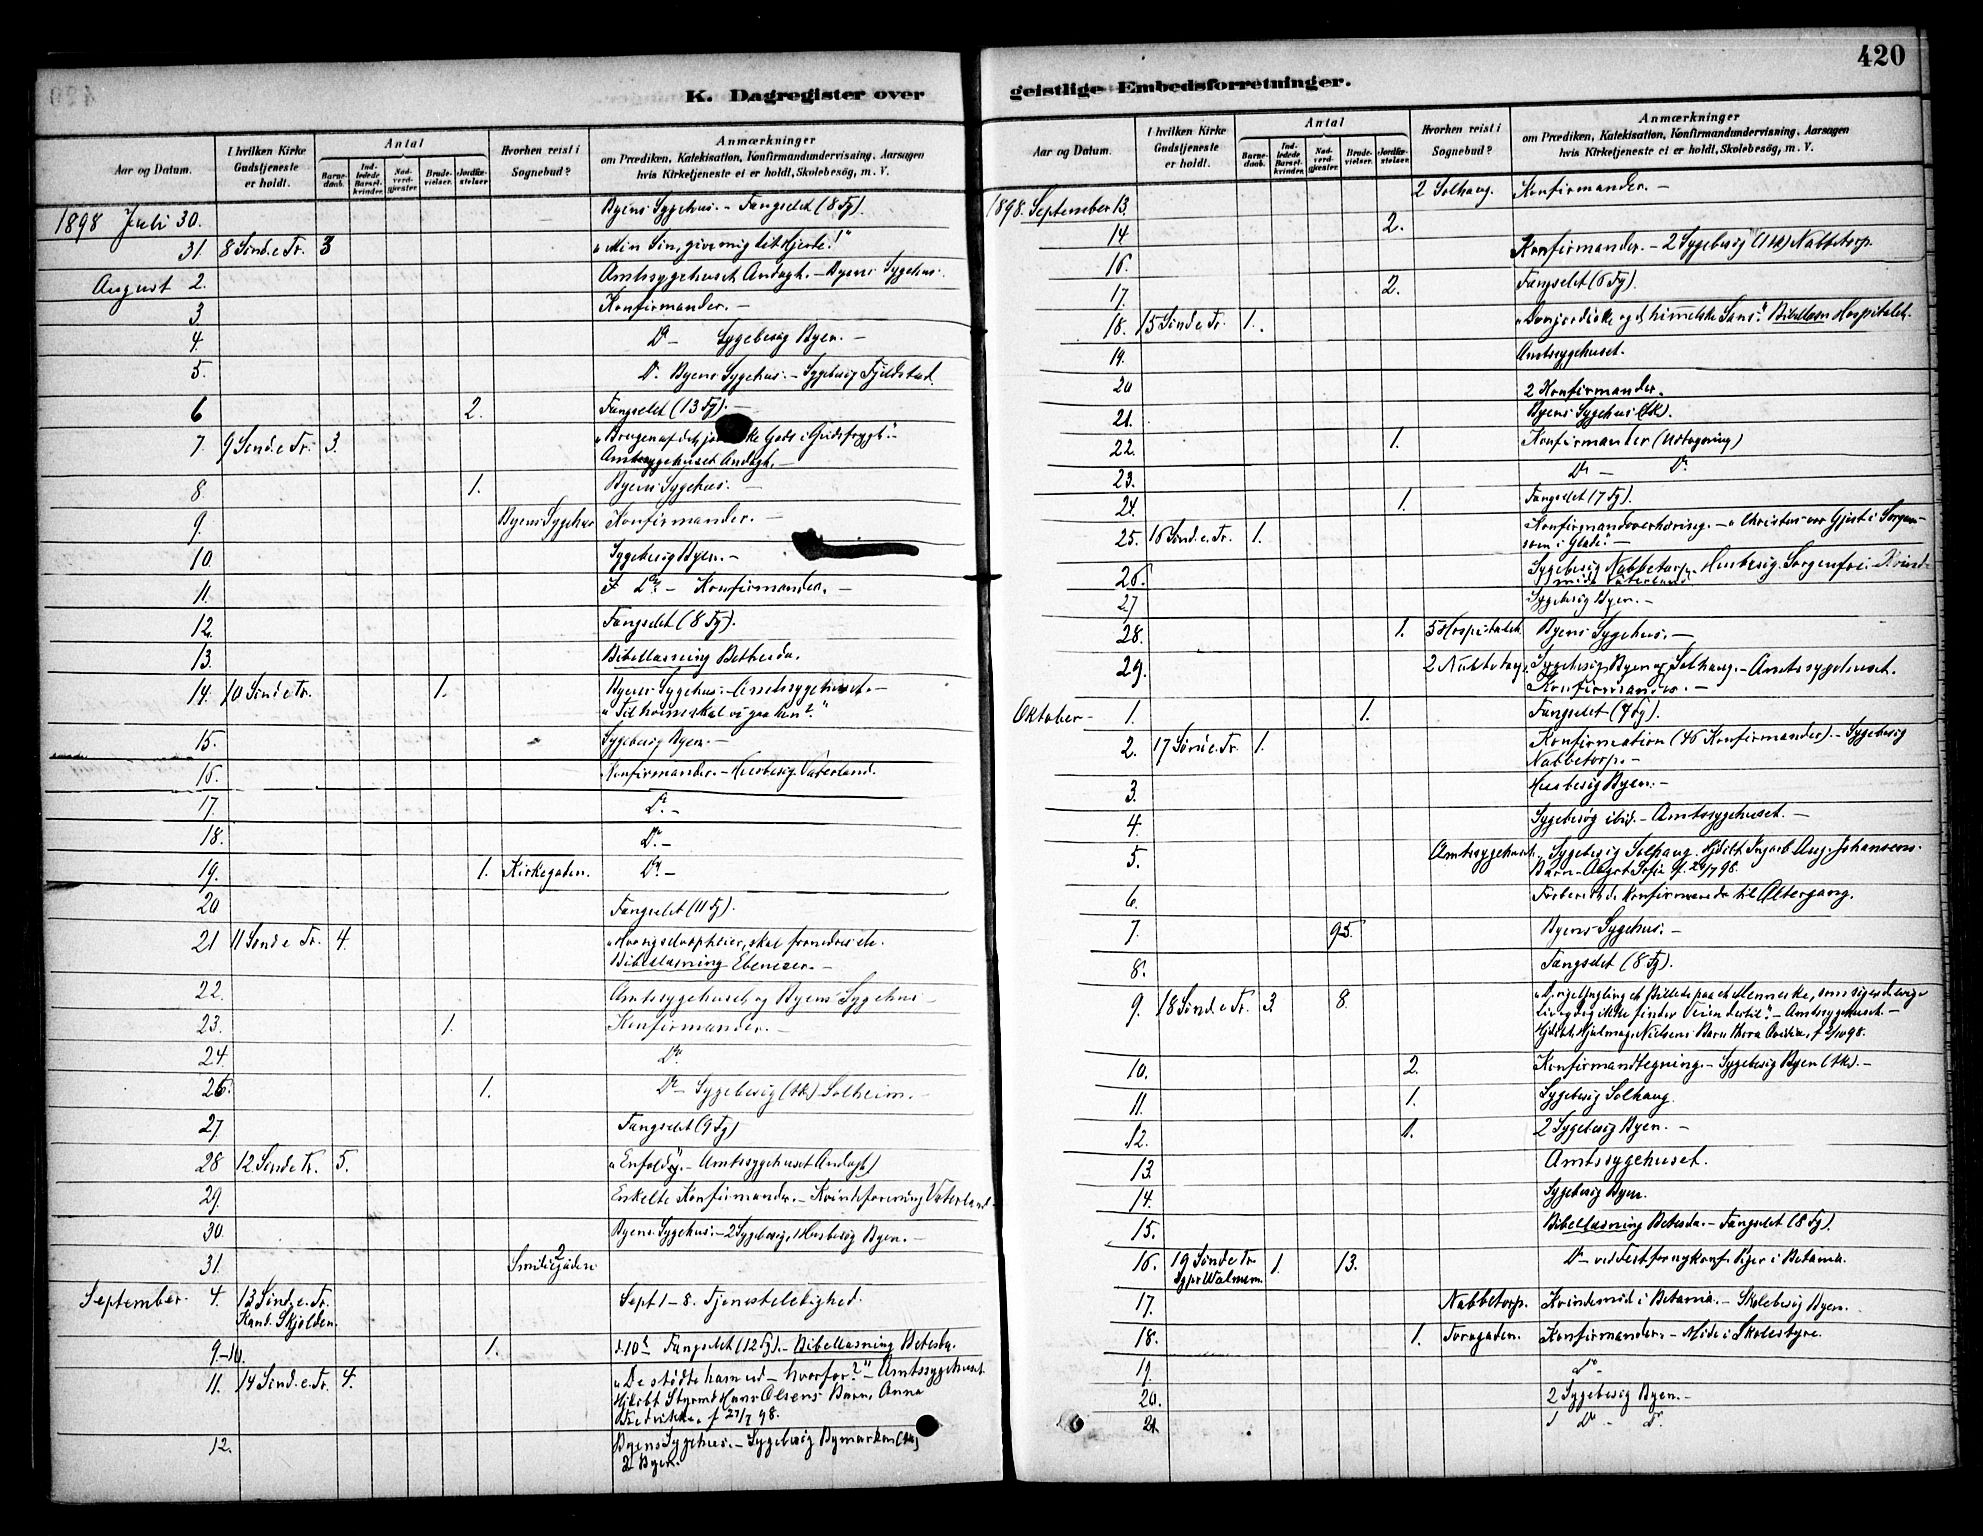 420
K. Dagregister over
geistlige Embedsforretninger.
Aar og Datum.
I hvilken Kirke Gudstjeneste er holdt.
Antal
Barnedaab.
Indledede Barselkvinder.
Nadverdgjester.
Brudevielser.
Jordfæstelser.
Hvorhen reist i Sognebud?
Anmærkninger
om Prædiken, Katekisation, Konfirmandundervisning, Aarsagen
hvis Kirketjeneste ei er holdt, Skolebesög, m. V.
1898 Juli 30. Byens Sygehus. – Fængselet (8 Fg).
31. 8 Sønd. e Tr. 3 "Min Søn, giv mig dit Hjerte!"
August 2. Amtssygehuset Andagt. – Byens Sygehus.
3 Konfirmander. –
4. Do – Sygebesøg Byen. –
5. Do. Byens Sygehus. – Sygebesøg Fjeldstad.
6 2. Fængselet (13 Fg). –
7. 9 Sønd. e Tr. 3. "Brugen af det Gods i Gudsfrygt." –
Amtssygehuset Andagt. –
8. 1. Byens Sygehus. –
9. Byens Sygehus Konfirmander. –
10. Sygebesøg Byen. –
11. Do. – Konfirmander. –
12. Fængselet (8 Fg).
13. Bibellæsning Bethesda.
14. 10 Sønd e Tr. 1. Byens Sygehus. – Amtssygehuset. –
"Til hvem skal vi gaa hen?"
15. Sygebesøg Byen. –
16. Konfirmander. – Husbesøg Vaterland.
17. Do. –
18. Do. –
19. 1. Kirkegaden. Do. –
20 Fængselet (11 Fg).
21 11 Sønd e Tr. 4.
Bibellæsning Ebenezer. –
22. Amtssygehuset og Byens Sygehus –
23. 1. Konfirmander. –
24. Do.
26. 1. Do – Sygebesøg (Ak) Solheim. –
27. Fængselet (9 Fg)
28 12 Sønd e Tr. 5. – Amtssygehuset Andagt)
29. Enkelte Konfirmander. – Kvindeforening Vaterland.
30. Byens Sygehus. – 2 Sygebesøg, 1 Husbesøg Byen. –
31. 2 Smedegaden
September. 4. 13 Sønd. e. Tr. Sept 1 – 8. Tjenesteledighed.
Kand. Skjolden.
9.–10. 1. d. 10de Fængselet (12 Fg). – Bibellæsning Betesda.
11. 14 Sønd. e. Tr. 4. "De stødte ham ud – hvorfor?" – Amtssygehuset
Hjdøbt Styrmd Hans Olsens Barn, Anna
Fredrikke, f 27/7 98.
12. Byens Sygehus. – Sygebesøg Bymarken (Ak)
2 Byen.
Aar og Datum.
I hvilken Kirke Gudstjeneste er holdt.
Antal
Barnedaab.
Indledede Barselkvinder.
Nadverdgjester.
Brudevielser.
Jordfæstelser.
Hvorhen reist i Sognebud?
Anmærkninger
om Prædiken, Katekisation, Konfirmandundervisning, Aarsagen
hvis Kirketjeneste ei er holdt, Skolebesög, m. V.
1898. September 13. 2 Solhaug. Konfirmander. –
14 2.
16. Konfirmander. – 2 Sygebesøg (1 Ak) Nabbetorp.
17. 2. Fængselet (6 Fg).
18. 15 Sønd e Tr. 1. "Den jordiske og d. himmelske Sans." Bibellæsn Hospitalet.
19. Amtssygehuset.
20 2 Konfirmander.
21. Byens Sygehus (Ak).
22. 1. Konfirmander (Udtagning)
23. Do – Do
24. 1. Fængselet (7 Fg).
25. 16 Sønd. e. Tr. 1. Konfirmandoverhøring. – "Christus vor Gjest i Sorgen
som i Glæde." –
26. Sygebesøg Nabbetorp. Husbesøg. Sorgenfri. – Kvinde-
møde Vaterland
27 Sygebesøg Byen. –
28. 1. 5 Hospitalet. Byens Sygehus. –
29. 2 Nabbetorp. Sygebesøg Byen og Solhaug. – Amtssygehuset.
Konfirmander. –
Oktober – 1. 1. Fængselet (7 Fg).
2. 17 Sønd e Tr. 1. Konfirmation (46 Konfirmander). – Sygebesøg
Nabbetorp. –
3. Husbesøg Byen. –
4. Sygebesøg ibid. – Amtssygehuset. –
5. Amtssygehuset. Sygebesøg Solhaug. Hjdøbt Aug. Johansens
Barn Sofie f. 29/7 98.
6. Forbered. d. Konfirmerede til Altergang.
7. 95. Byens Sygehus. –
8. Fængselet (8 Fg).
9. 18 Sønd. e Tr. 3. 8. Billede paa et Menneske, som
ikke finder Veien dertil." – Amtssygehuset. –
Hjdøbt Nielsens Barn f 2/10 98.
10. 2. Konfirmandtegning. – Sygebesøg Byen (Ak). –
11. 1. Sygebesøg Solhaug.
12. 1. 2 Sygebesøg Byen. –
13. Amtssygehuset.
14. Sygebesøg Byen.
15. Bibellæsning Betesda. – Fængselet (8 Fg).
16. 19 Sønd e Tr. 1. 13. Do – ved Fest for i Betania.
Walmsn.
17. Nabbetorp. Kvindemød i Betania. – Skolebesøg Byen.
18. 1. Torvgaden. Konfirmander. – Møde i Skolestyre.
19. Do –
20. 2 Sygebesøg Byen. –
21 1 Do – Do.